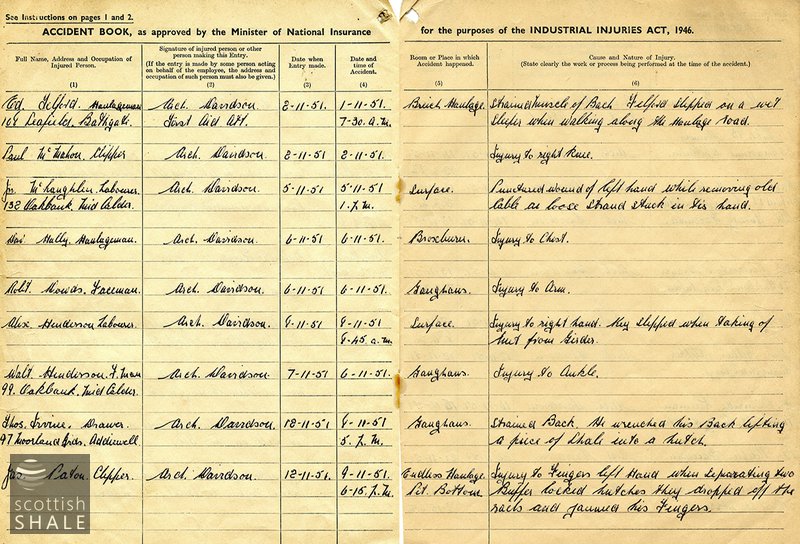 See Instructions on pages 1 and 2.
ACCIDENT BOOK, as approved by the Minister of National Insurance for the purposes of the INDUSTRIAL INJURIES ACT, 1946.
Full Name, Address and Occupation of Injured Person.
(1)
Signature of injured person or other person making this Entry.
(If the entry is made by some person acting on behalf of the employee, the address and occupation of such person must also be given.)
(2)
Date when Entry made.
(3)
Date and time of Accident.
(4)
Room or Place in which Accident happened.
(5)
Cause and Nature of Injury.
(State clearly the work or process being performed at the time of the accident.)
(6)
Ed. Telford. Haulageman Arch. Davidson. 2-11-51 1-11-51 Haulage. Strained muscle of Back Telford slipped on a wet
107 Leafield, Bathgate. First Aid Att. 7-30. a.m. sleeper when walking along the Haulage road.
Paul McMahon. Clipper Arch. Davidson. 2-11-51 2-11-51. Injury to right knee.
Jn. McLaughlin. Labourer. Arch. Davidson. 5-11-51 5-11-51 Surface. Punctured wound of left hand while removing old
132 Oakbank. Mid Calder. 1. P.M. cable as loose strand stuck in his hand.
Hully. Haulageman. Arch. Davidson. 6-11-51 6-11-51. Broxburn. Injury to Chest.
Robt. Dowds. Faceman. Arch. Davidson. 6-11-51. 6-11-51. Injury to Arm.
Alex. Henderson Labourer Arch. Davidson. 9-11-51 9-11-51 Surface. Injury to right hand. Key slipped when taking of
9-45. a.m. nut from Girder.
Walt Henderson. F.man Arch. Davidson. 7-11-51 6-11-51. Injury to Ankle.
99. Oakbank. Mid Calder.
Thos. Irvine. Drawer. Arch. Davidson 12-11-51 9-11-51 Strained Back. He wrenched his Back lifting
97 Moorland Grds. Addiewell 5. P.M. a piece of shale into a hutch.
Jas. Paton. Clipper Arch Davidson. 12-11-51. 9-11-51. Endless Haulage. Injury to Fingers left Hand when separating two
6-15. P.M. Pit Bottom Buffer locked hutches they dropped off the
rails and jammed his Fingers.
scottish
SHALE